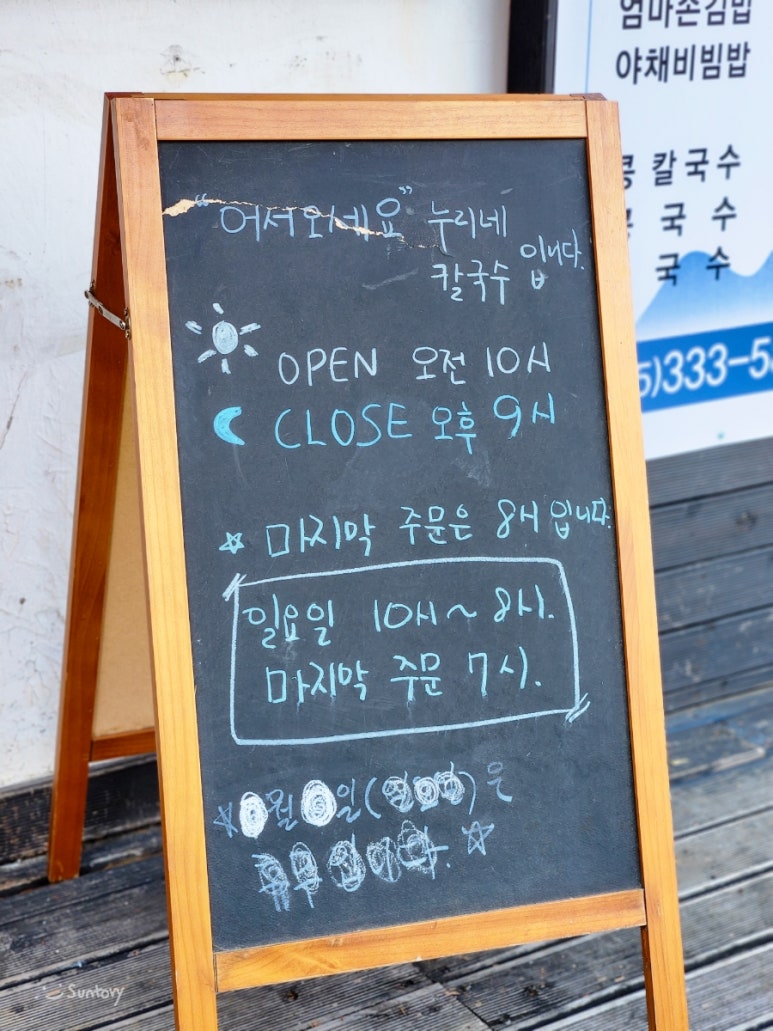 "어서오세요" 누리네
칼국수 입니다.
OPEN 오전 10시
CLOSE 오후 9시
마지막 주문은 8시 입니다.
일요일 10시~8시.
마지막 주문 7시.
월 일( )은
엄마손김밥
야채비빔밥
콩칼국수
국수
국수
5)333-5
Suntory